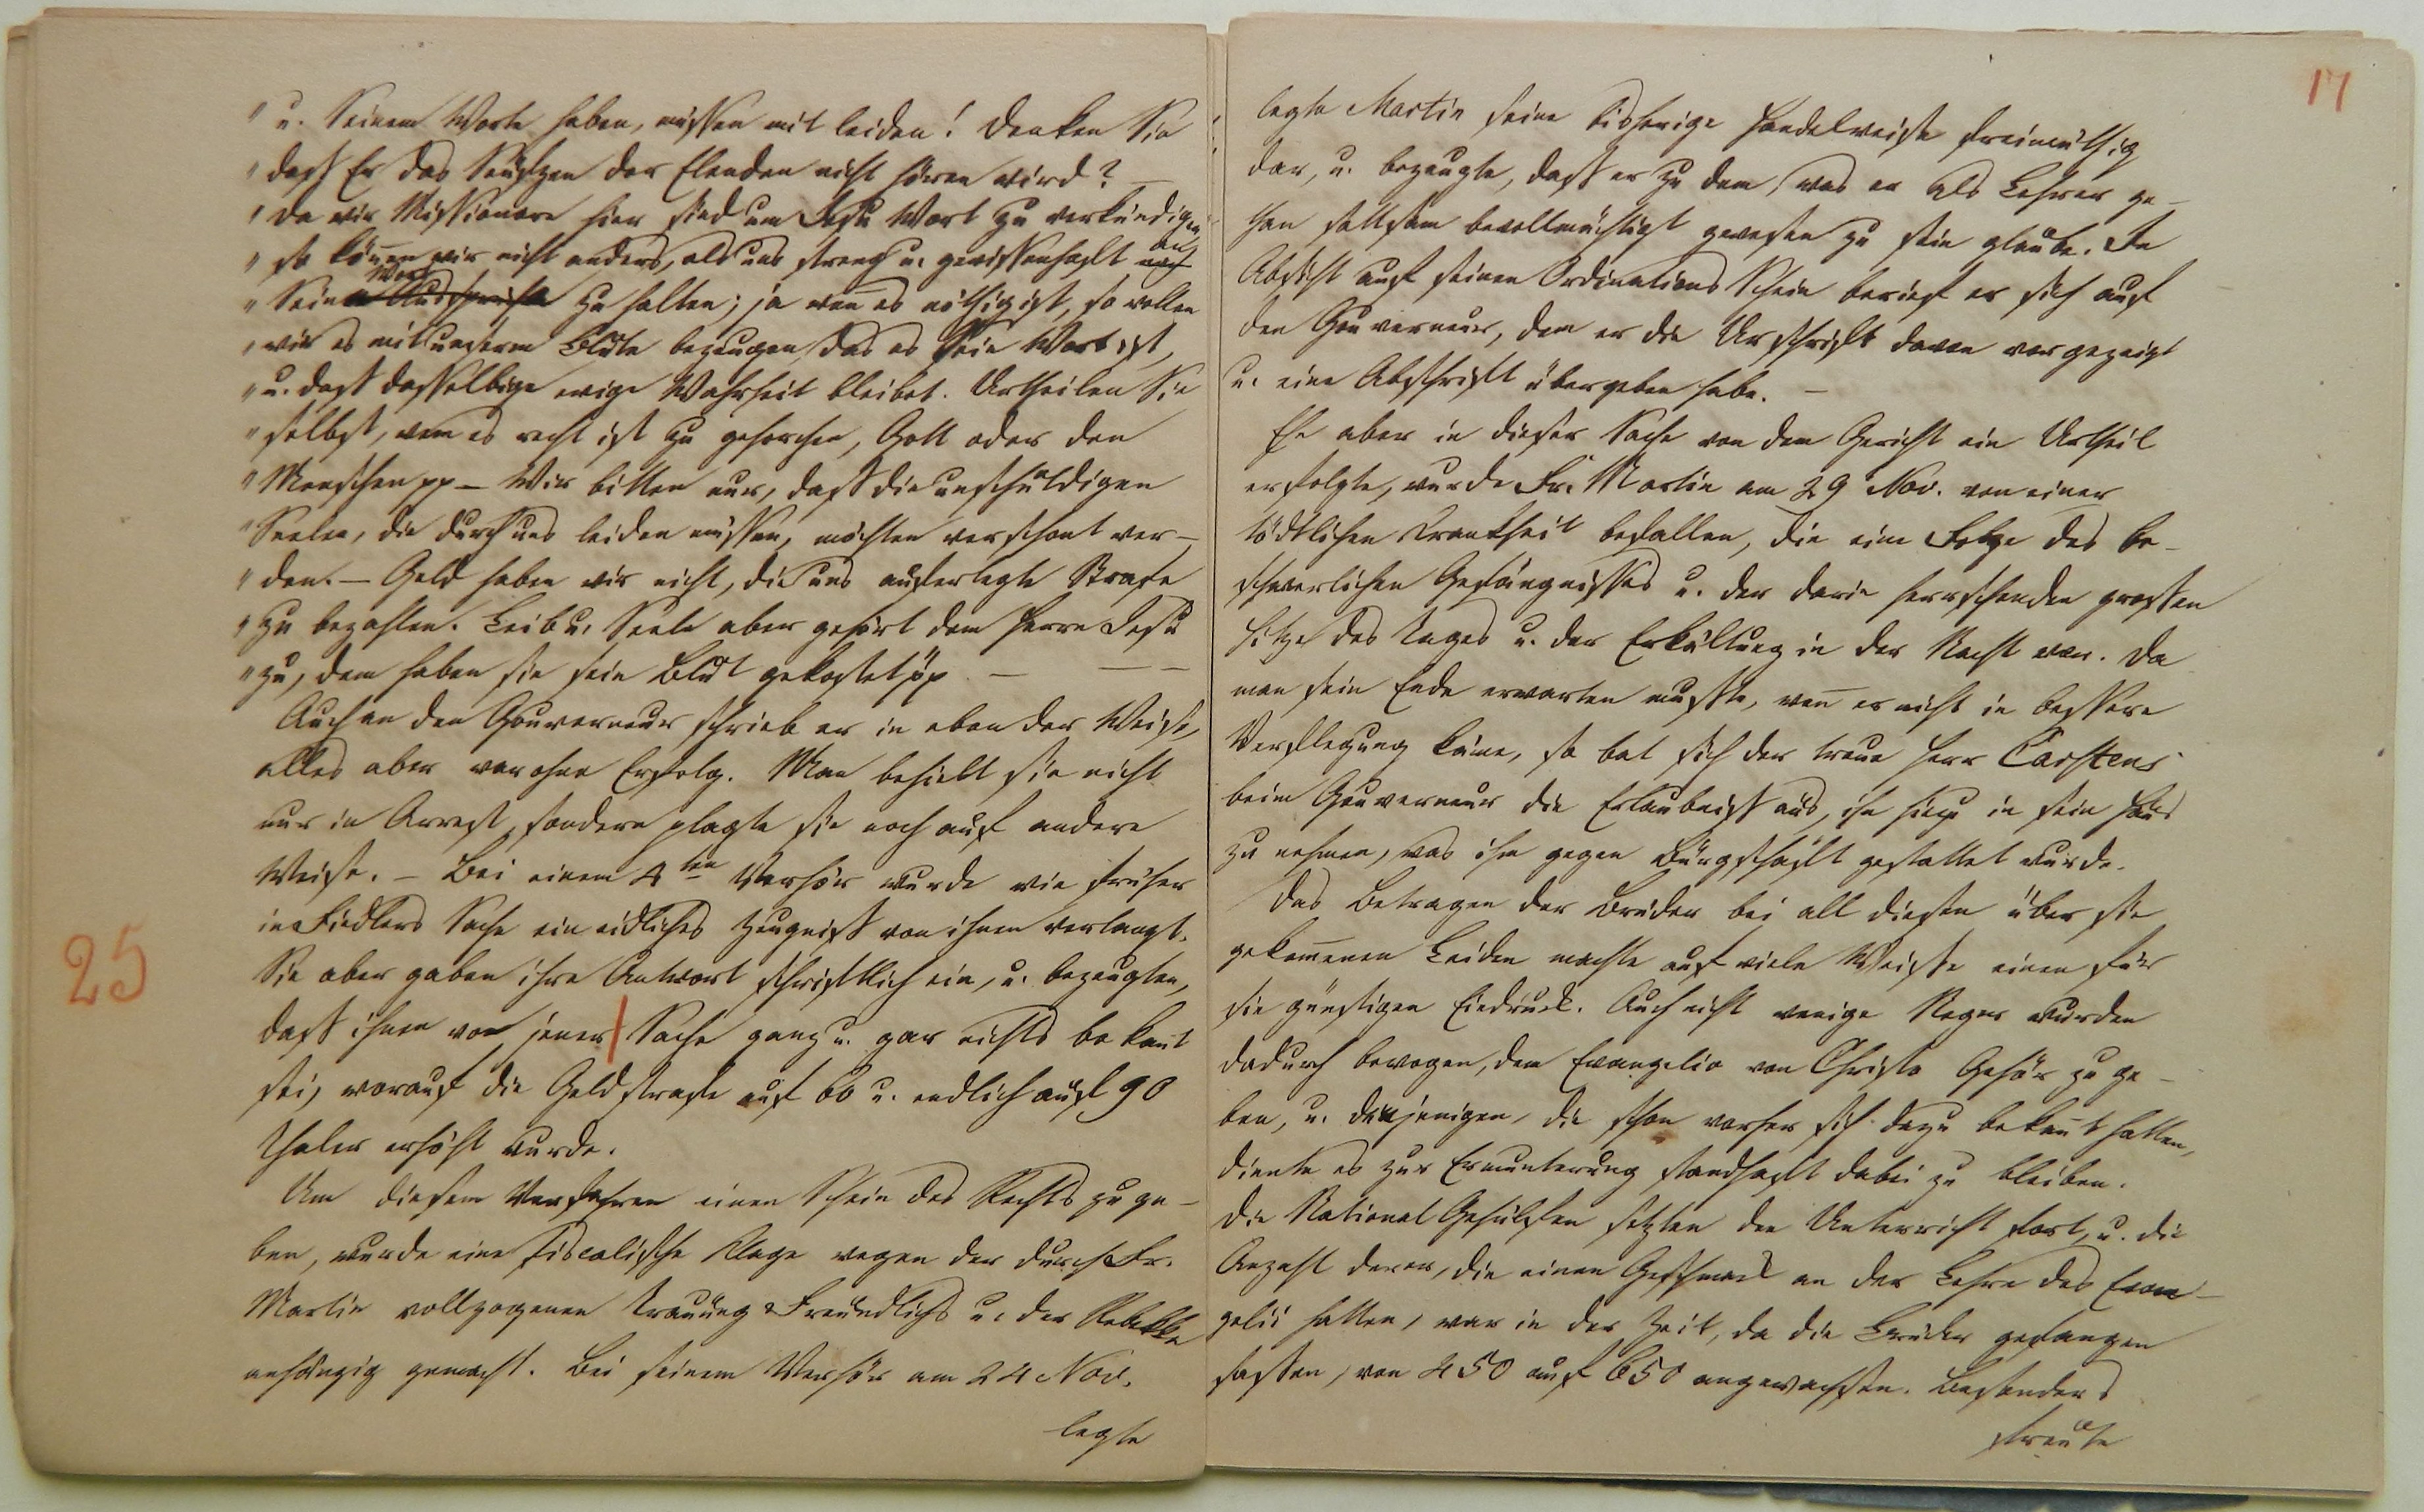 " u. Seinem Worte haben, müssen mit leiden! Denken Sie
" daß Er das Seufzen der Elenden nicht hören wird? —
" da wir Missionare hier sind um Jesu Wort zu verkündigen
" so können wir nicht anders, als uns streng u. gewissenhaft nach an
" Seine Aussprüche Wort zu halten; ja wenn es nöthig ist, so wollen
" wir es mit unserem Blute bezeugen, das es Sein Wort ist,
" u. daß dasselbige ewige Wahrheit bleibet. Urtheilen Sie
" selbst, wem es recht ist zu gehorchen, Gott oder den
" Menschen pp — Wir bitten nur, daß die unschuldigen
" Seelen, die durch uns leiden müssen, möchten verschont wer-
" den. — Geld haben wir nicht, die uns auferlegte Strafe
" zu bezahlen. Leib u. Seele aber gehört dem Herrn Jesu
" zu, dem haben sie sein Blut gekostet pp. — — —
Auch an den Gouverneur schrieb er in eben der Weise,
alles aber war ohne Erfolg. Man behielt sie nicht
nur in Arrest, sondern plagte sie noch auf andere
Weise. — Bei einem 4ten Verhör wurde wie früher
in Fiedlers Sache ein eidliches Zeugniß von ihnen verlangt.
Sie aber gaben ihre Antwort schriftlich ein, u. bezeugten,
25
daß ihnen von jener Sache ganz u. gar nichts bekannt
sei, worauf die Geldstrafe auf 60 u. endlich auf 90
Thaler erhöht wurde.
Um diesem Verfahren einen Schein des Rechts zu ge-
ben, wurde eine fiscalische Klage wegen der durch Br.
Martin vollzogenen Trauung Freundlichs u. der Rebekka
anhängig gemacht. Bei seinem Verhör am 24 Nov.
legte
17
legte Martin seine bisherige Handelweise freimüthig
dar, u. bezeugte, daß er zu dem, was er als Lehrer ge-
than sattsam bevollmächtigt gewesen zu sein glaube. In
Absicht auf seinen Ordinations Schein berief er sich auf
den Gouverneur, dem er die Urschrift davon vorgezeigt
u. eine Abschrift übergeben habe. —
Ehe aber in dieser Sache von dem Gericht ein Urtheil
erfolgte, wurde Br. Martin am 29 Nov. von einer
tödtlichen Krankheit befallen, die eine Folge des be-
schwerlichen Gefängnisses u. der darin herrschenden großen
Hitze des Tages u. der Erkältung in der Nacht war. Da
man sein Ende erwarten mußte, wenn er nicht in bessere
Verpflegung käme, so bat sich der treue Herr Carstens
beim Gouverneur die Erlaubniß aus, ihn hiezu in sein Haus
zu nehmen, was ihm gegen Bürgschaft gestattet wurde.
Das Betragen der Brüder bei all diesen über sie
gekommenen Leiden machte auf viele Weisse einen für
sie günstigen Eindruck. Auch nicht wenige Neger wurden
dadurch bewogen, dem Evangelio von Christo Gehör zu ge-
ben, u. denjenigen, die schon vorher sich dazu bekannt hatten,
diente es zur Ermunterung standhaft dabei zu bleiben.
Die National Gehülfen setzten den Unterricht fort, u. die
Anzahl derer, die einen Geschmack an der Lehre des Evan-
gelii hatten, war in der Zeit, da die Brüder gefangen
saßen, von 450 auf 650 angewachsen. Besonders
freute